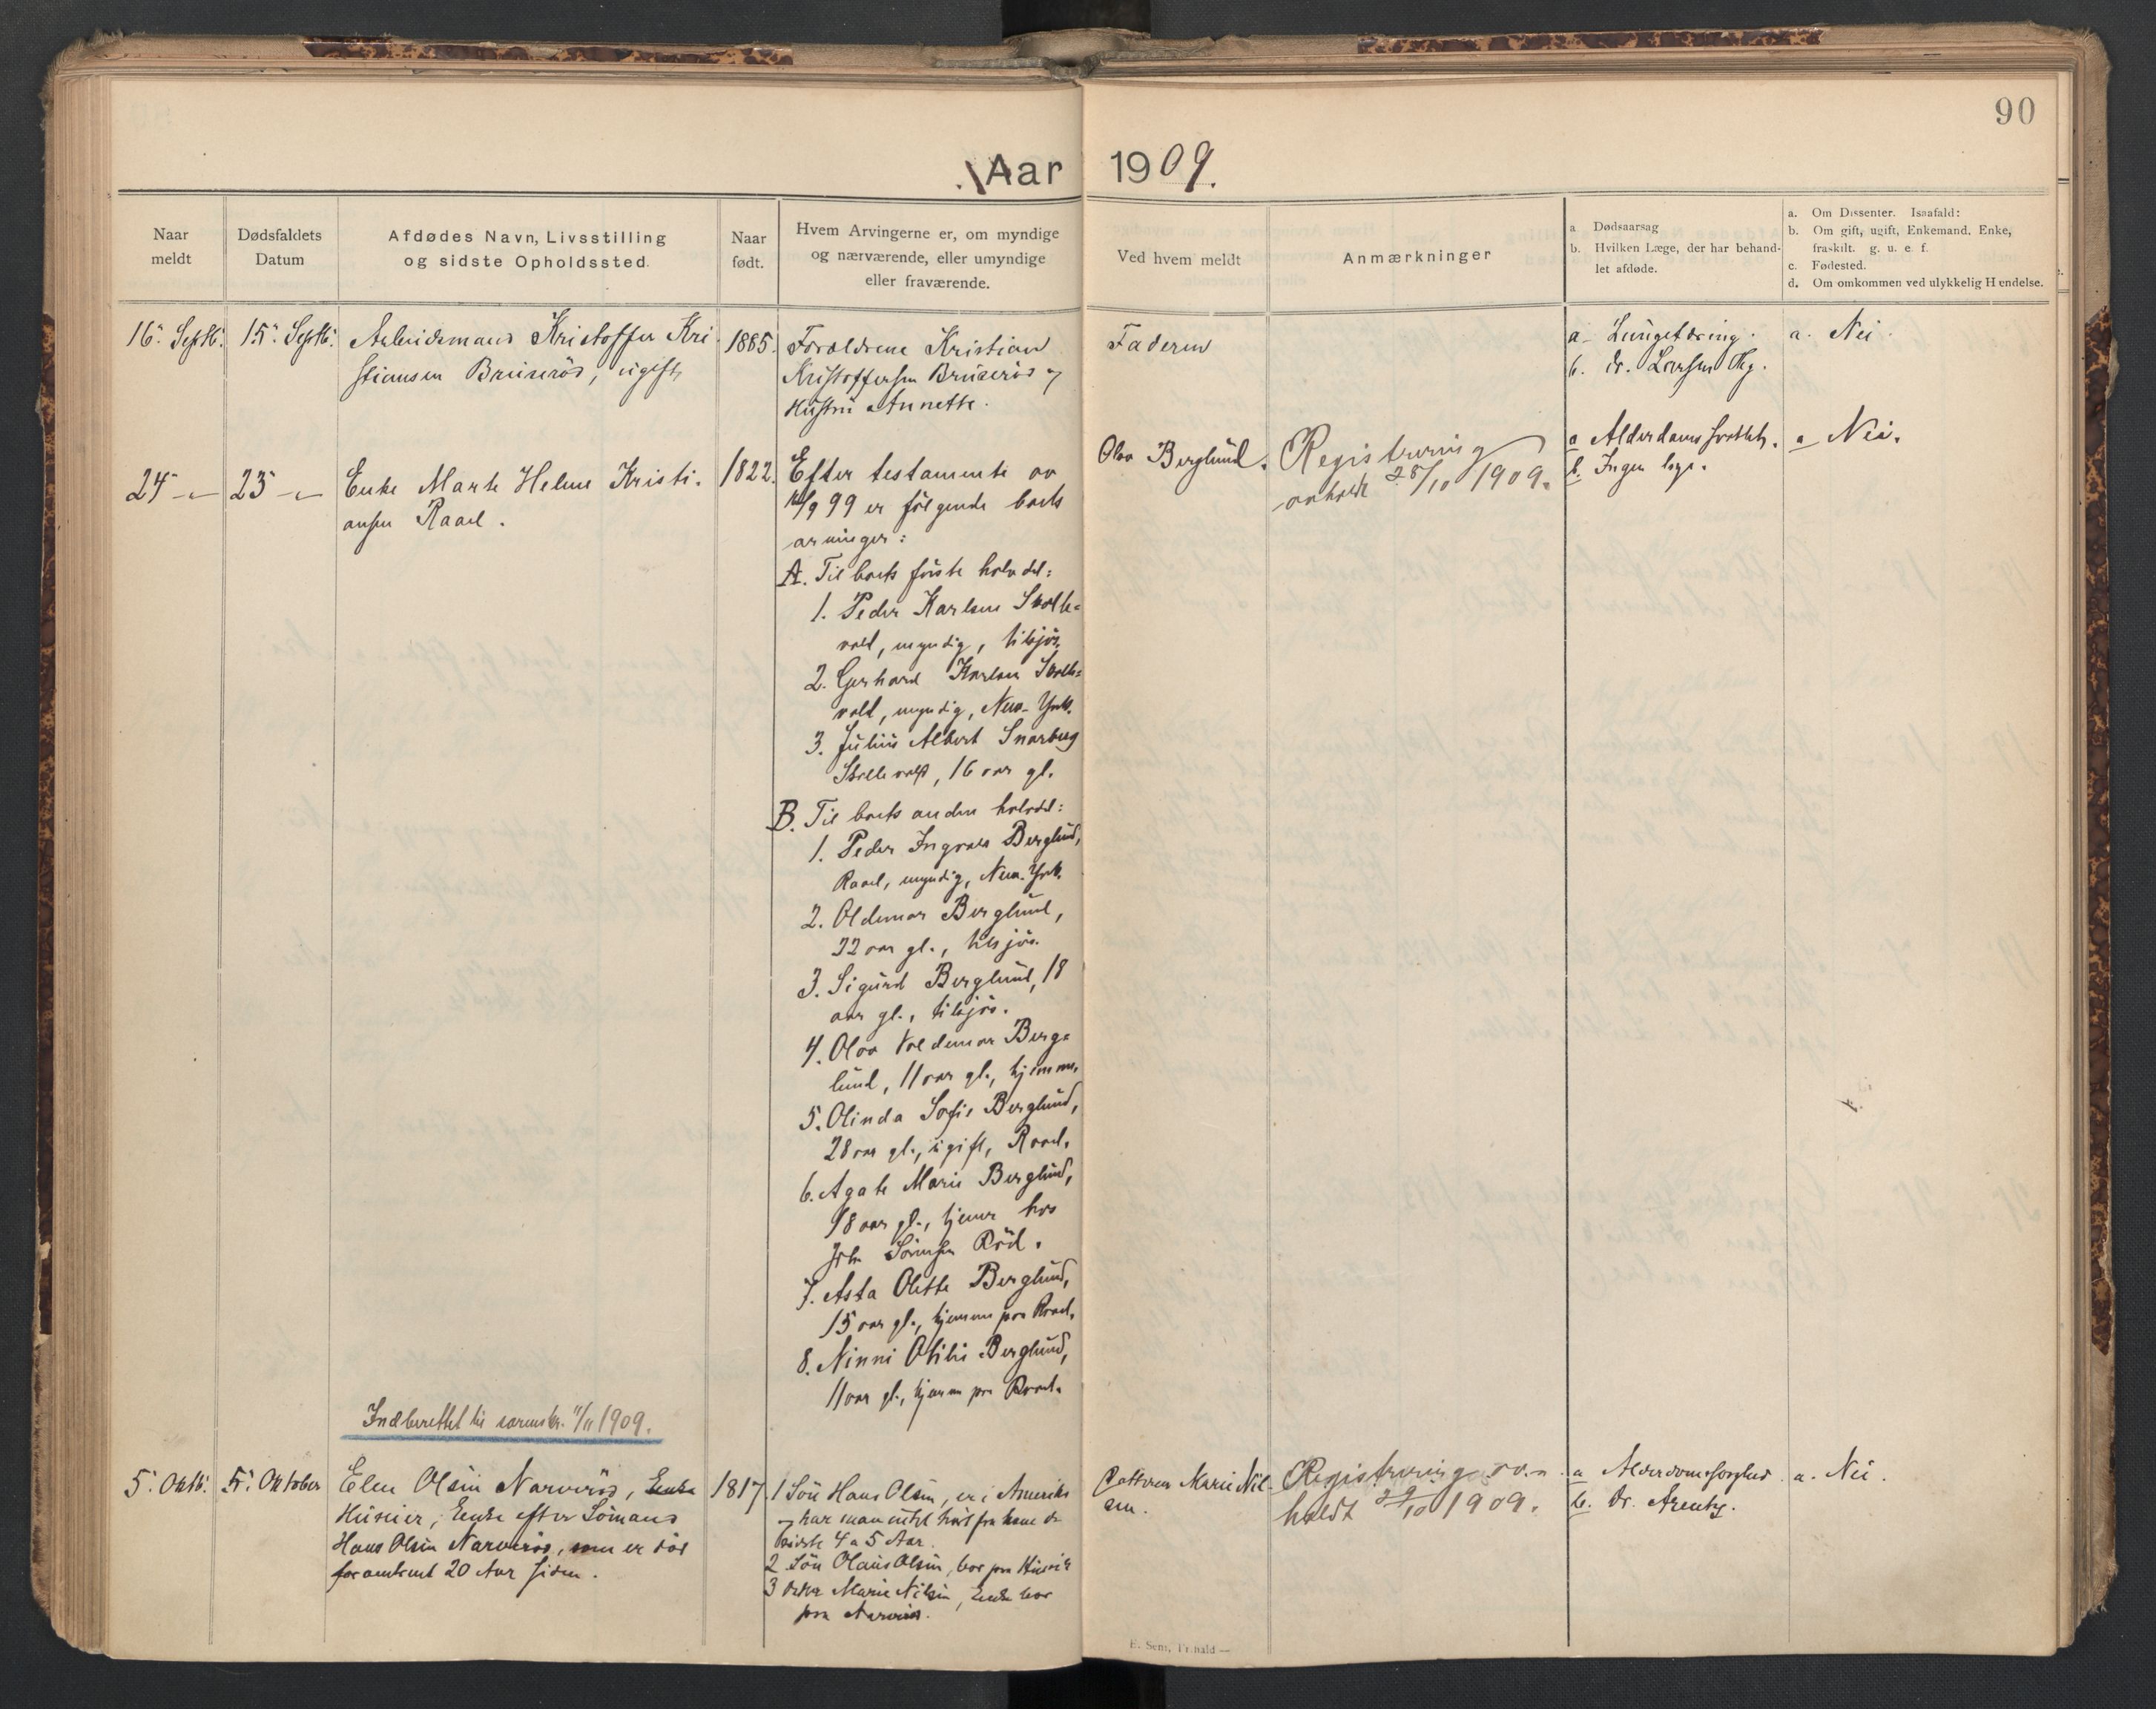 90
Aar 1909.
Naar meldt
Dødsfaldets Datum
Afdødes Navn, Livsstilling
og sidste Opholdssted.
Naar født.
Hvem Arvingerne er, om myndige
og nærværende, eller umyndige
eller fraværende.
Ved hvem meldt
Anmærkninger
a Dødsaarsag
b. Hvilken Læge, der har behand-
let afdøde.
a. Om Dissenter. Isaafald:
b. Om gift, ugift, Enkemand, Enke,
fraskilt. g. u. e. f.
c. Fødested.
d. Om omkommen ved ulykkelig Hendelse.
16. Septb. 15. Septb. Arbeidsmand Kristoffer Kri
stiansen Brüserös, ugift
1885.
Forældrene Kristian
Kristoffersen Brüserös og
Hustru Annette.
Faderen
a. Lungetæring.
b. dr. Larsen Tbg.
a. Nei.
24 23 Enke Marte Helene Kristi-
ansen Raael.
1822.
Efter testamente av
/9 99 er følgende boets
arvinger:
A. Til boets første halvdel:
1. Peder Karlsen Skolle-
vold, myndig, tilsjøs.
2. Gerhard Karlsen Skolle-
vold, myndig, New-York.
3. Julius Albert Snarberg
Skollevold, 16 aar gl.
B. Til boets anden halvdel:
1. Peder Ingvald Berglund,
Raael, myndig, New-York.
2. Oldemar Berglund,
22 aar gl., tilsjøs.
3. Sigurd Berglund, 18
aar gl., tilsjøs.
4. Olav Valdemar Berg-
lund, 11 aar gl., hjemme.
5. Olinda Sofie Berglund,
28 aar gl., ugift, Raael.
6. Agate Marie Berglund,
18 aar gl., tjener hos
Joh. Sørensen Röd.
7. Asta Olette Berglund,
15 aar gl., hjemme paa Raael.
8. Ninni Otilie Berglund,
11 aar gl., hjemme paa Raael.
Olav Berglund.
Registrering
avholdt 28/10 1909.
a Alderdomssvakhet.
b. Ingen læge.
a Nei.
Indberettet til sorenskr. /11 1909.
5. Oktb. 5. Oktober Elen Olsen Narverös, Enke
Husmer, Enke efter Sömand
Hans Olsen Narverös, som er död
for omtrent 20 Aar siden.
1817.
1 Sön Hans Olsen, er i Amerika
og har man intet hört fra ham de
sidste 4 a 5 Aar.
2 Sön Olaus Olsen, bor paa
3 Datter Marie Nilsen, Enke bor
paa Narverös.
Datteren Marie Nil-
sen.
Registrering av-
holdt 29/10 1909.
a Alderdomssvaghed.
b. Dr. Arentz.
a. Nei.
E. Sem, Fr.hald —